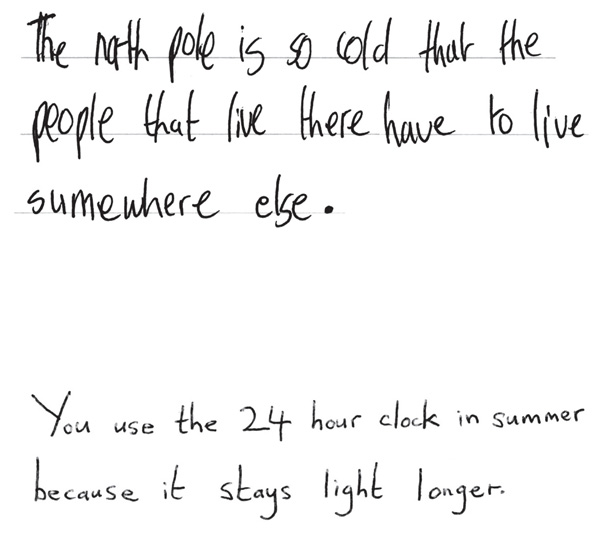 The north pole is so cold that the
people that live there have to live
sumewhere else.
You use the 24 hour clock in summer
because it stays light longer.